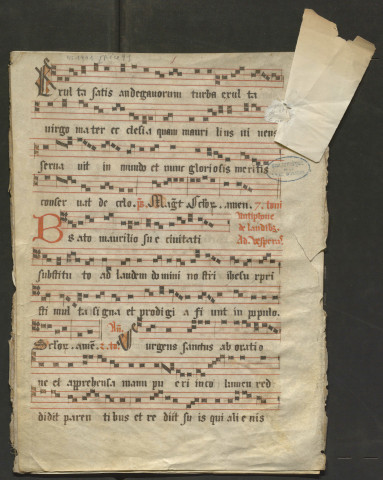 Exul ta satis andegauorum turba exul ta
uirgo mater ec clesia quam mauri lius ui uens
serua uit in mundo et nunc gloriosis meritis
conser uat de celo. p. Magt Sclor. amen. 7. toni
antiphone
de laudibz
Ad vesperas
B eato maurilio su e ciuitati
substitu to ad laudem do mini no stri ihesu xpri
sti mul ta signa et prodigi a fi unt in populo.
Sclor. amē. S urgens sanctus ab oratio
ne et apprehensa manu pu eri inco lumen red
didit paren tibus et re diit su is qui ali e nis